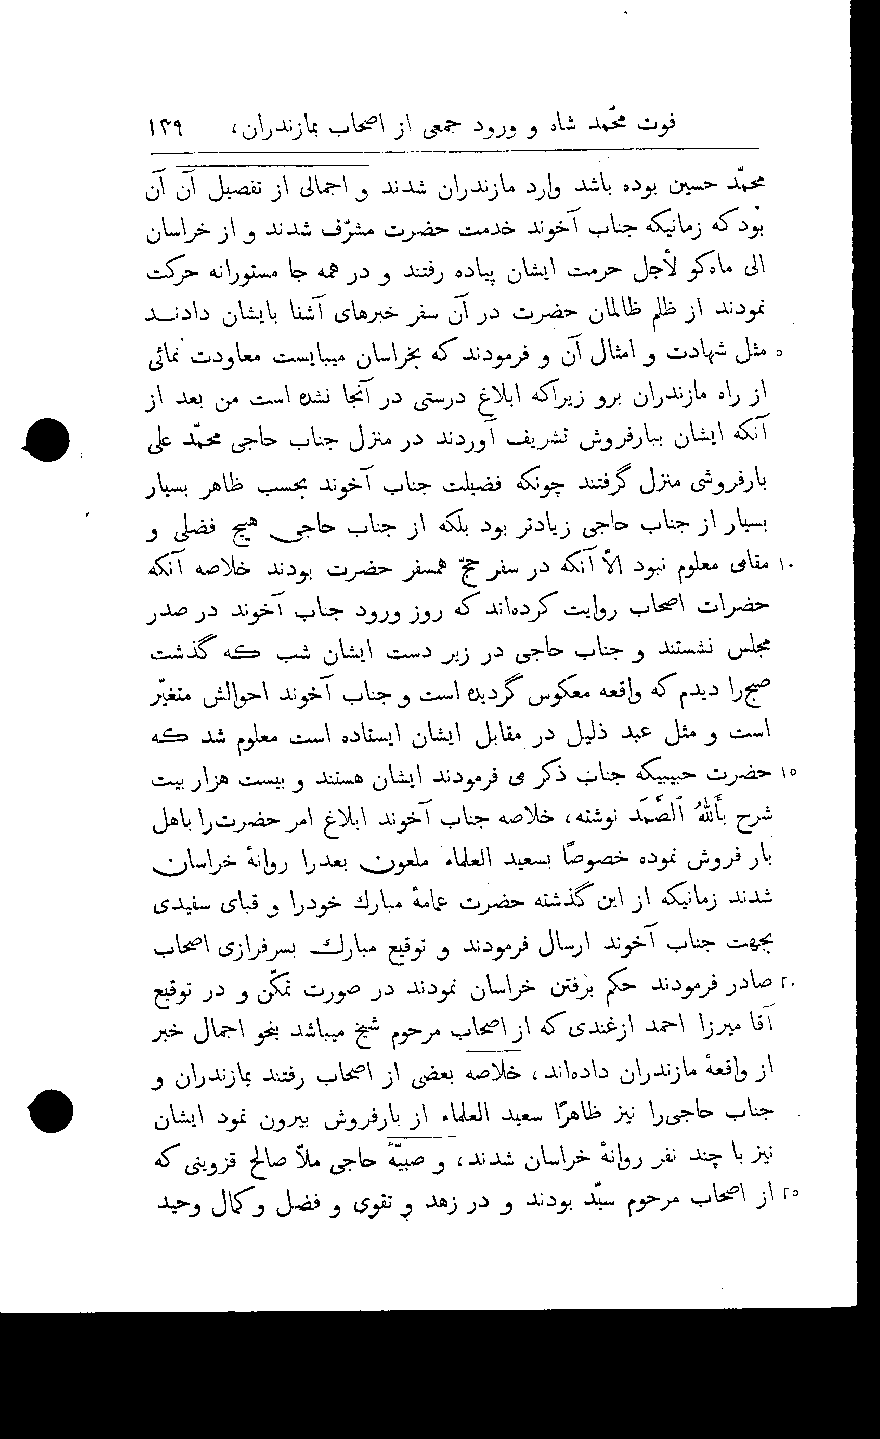 فوت محمّد شاه و ورود جمعی از اصحاب بمازندران، ۱۳۹
محمّد حسین بوده باشد وارد مازندران شدند و اجمالی از تفصیل آن آن
بود که زمانیکه جناب آخوند خدمت حضرت مشرّف شدند و از خراسان
الی ماه‌کو لأجل حرمت ایشان پیاده رفتند و در همه جا مستورانه حرکت
نمودند از ظلم ظالمان حضرت در آن سفر خبرهای آشنا بایشان دادنــد
۵ مثل شهادت و امثال آن و فرمودند که بخراسان میبایست معاودت نمائی
از راه مازندران برو زیراکه ابلاغ درستی در آنجا نشده است من بعد از
آنکه ایشان ببارفروش تشریف آوردند در منزل جناب حاجی محمّد علی
بارفروشی منزل گرفتند چونکه فضیلت جناب آخوند بحسب ظاهر بسیار
بسیار از جناب حاجی زیادتر بود بلکه از جناب حاجی هیچ فضلی و
۱۰ مقامی معلوم نبود الّا آنکه در سفر حجّ همسفر حضرت بودند خلاصه آنکه
حضرات اصحاب روایت کرده‌اند که روز ورود جناب آخوند در صدر
مجلس نشستند و جناب حاجی در زیر دست ایشان شب که گذشت
صبح‌را دیدم که واقعه معکوس گردیده است و جناب آخوند احوالش متغیّر
است و مثل عبد ذلیل در مقابل ایشان ایستاده است معلوم شد که
۱۵ حضرت حبیبیکه جناب ذکر می فرمودند ایشان هستند و بیست هزار بیت
شرح بأللّٰهُ ٱلصَّمَد نوشته، خلاصه جناب آخوند ابلاغ امر حضرت‌را باهل
بار فروش نموده خصوصًا بسعید العلماء ملعون بعدرا روانهٔ خراسان
شدند زمانیکه از این گذشته حضرت عمامهٔ مبارك خودرا و قبای سفیدی
بجهت جناب آخوند ارسال فرمودند و توقیع مبارك بسرفرازی اصحاب
۲۰ صادر فرمودند حکم برفتن خراسان نمودند در صورت تمکّن و در توقیع
آقا میرزا احمد ازغندی که از اصحاب مرحوم شیخ میباشد بنحو اجمال خبر
از واقعهٔ مازندران داده‌اند، خلاصه بعضی از اصحاب رفتند بمازندران و
جناب حاجی‌را نیز ظاهرًا سعید العلماء از بارفروش بیرون نمود ایشان
نیز با چند نفر روانهٔ خراسان شدند، و صبیّهٔ حاجی ملّا صالح قزوینی که
۲۵ از اصحاب مرحوم سیّد بودند و در زهد و تقوی و فضل و کمال وحید